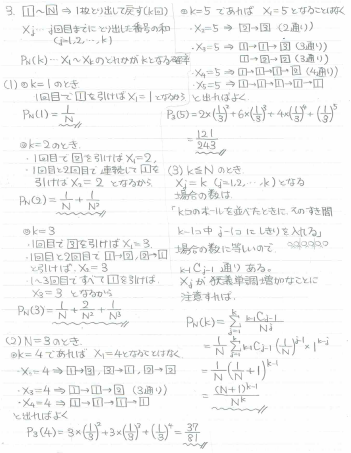 3. [1]～[N] ⇒ 1枚とり出して戻す(k回)
Xj … j回目までにとり出した番号の和
(j=1,2,…,k)
PN(k)… X1～Xkのどれかがkとなる確率
(1) ◎k=1のとき
1回目で[1]を引けばX1=1となるから
PN(1) = 1/N
◎k=2のとき
・1回目で[2]を引けばX1=2,
・1回目と2回目で連続して[1]を
引けばX2=2 となるから
PN(2) = 1/N + 1/N²
◎k=3
・1回目で[3]を引けばX1=3.
・1回目と2回目で[1]→[2], [2]→[1]
と引けば. X2=3
・1～3回目ですべて[1]を引けば.
X3=3 となるから
PN(3) = 1/N + 2/N² + 1/N³
(2) N=3のとき.
◎k=4であれば X1=4となることはなく
・X2=4 ⇒ [1]→[3], [3]→[1], [2]→[2]
・X3=4 ⇒ [1]→[1]→[2] (3通り)
・X4=4 ⇒ [1]→[1]→[1]→[1]
と出ればよく
P3(4) = 3×(1/3)²+3×(1/3)³+(1/3)⁴ = 37/81
◎k=5 であれば X1=5となることはなく
・X2=5 ⇒ [2]→[3] (2通り)
・X3=5 ⇒ [1]→[1]→[3] (3通り)
[1]→[2]→[2] (3通り)
・X4=5 ⇒ [1]→[1]→[1]→[2] (4通り)
・X5=5 ⇒ [1]→[1]→[1]→[1]→[1]
と出ればよく.
P3(5) = 2×(1/3)²+6×(1/3)³+4×(1/3)⁴+(1/3)⁵
= 121/243
(3) k≦N のとき.
Xj = k (j=1,2,…,k) となる
場合の数は
「kコのボールを並べたときに, そのすき間
k-1コ中 j-1コにしきりを入れる」
場合の数に等しいので.
k-1Cj-1 通りある.
Xjが狭義単調増加なことに
注意すれば.
PN(k) = Σ[j=1→k] k-1Cj-1/N^j
= 1/N Σ[j=1→k] k-1Cj-1 (1/N)^(j-1) × 1^(k-j)
= 1/N (1/N + 1)^(k-1)
= (N+1)^(k-1)/N^k